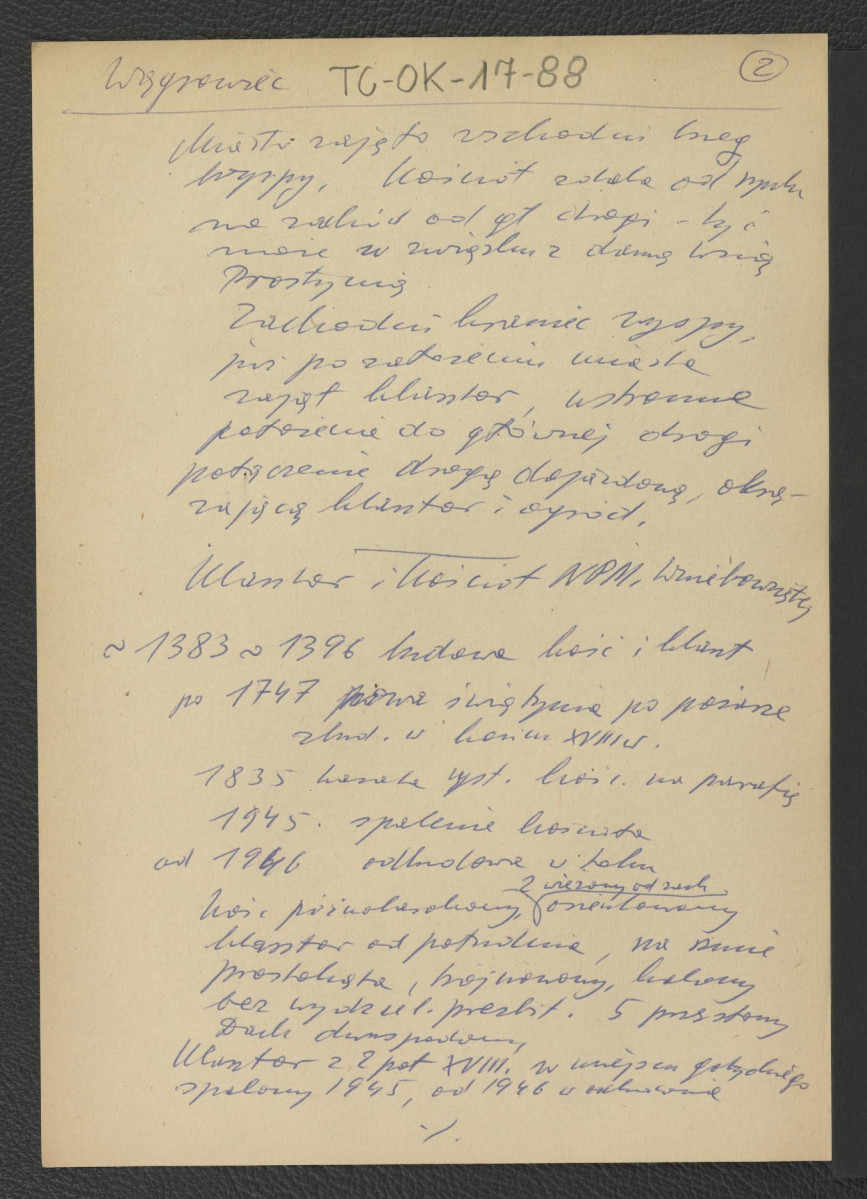 Wągrowiec TC-OK-17-88 2
Miasto zajęto wschodni brzeg
wyspy, kościół zdala od rynku
na zachód od gł drogi - być
może w związku z dawną wsią
Prostynią
Zachodni kraniec wyspy,
już po założeniu miasta
zajął klasztor, ustronne
położenie do głównej drogi
połączenie drogą dojazdową, okrą-
żającą klasztor i ogród.
Klasztor i kościół NPM. Wniebowziętej
~ 1383 ~ 1396 budowa kość i klaszt
po 1747 nowa świątynia po pożarze
zbud. w końcu XVIII w.
1835 kasata kość. na parafię
1945. spalenie kościoła
od 1946 odbudowa w toku
2 wieżowy od zach.
Kość późnobarokowy, orientowany
klasztor od południa, na rzucie
prostokąta, trójnawowy, halowy
bez wydziel. prezbit. 5 przęsłowy
Dach dwuspadowy,
Klasztor z 2 poł XVIII. w miejscu gotyckiego
spalony 1945, od 1946 w odbudowie
./.